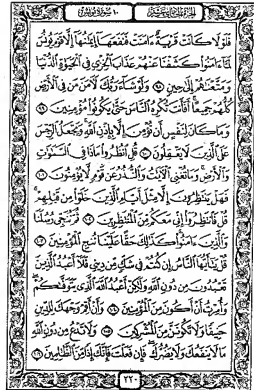 الجزء الحادي عشر ١٠ سورة يونس
فَلَوْلَا كَانَتْ قَرْيَةٌ ءَامَنَتْ فَنَفَعَهَا إِيمَٰنُهَا إِلَّا قَوْمَ يُونُسَ
لَمَّا ءَامَنُوا كَشَفْنَا عَنْهُمْ عَذَابَ الْخِزْيِ فِي الْحَيَوٰةِ الدُّنْيَا
وَمَتَّعْنَٰهُمْ إِلَىٰ حِينٍ ٩٨ وَلَوْ شَاءَ رَبُّكَ لَءَامَنَ مَن فِي الْأَرْضِ
كُلُّهُمْ جَمِيعًا أَفَأَنتَ تُكْرِهُ النَّاسَ حَتَّىٰ يَكُونُوا مُؤْمِنِينَ ٩٩
وَمَا كَانَ لِنَفْسٍ أَن تُؤْمِنَ إِلَّا بِإِذْنِ اللَّهِ وَيَجْعَلُ الرِّجْسَ
عَلَى الَّذِينَ لَا يَعْقِلُونَ ١٠٠ قُلِ انظُرُوا مَاذَا فِي السَّمَٰوَٰتِ
وَالْأَرْضِ وَمَا تُغْنِي الْءَايَٰتُ وَالنُّذُرُ عَن قَوْمٍ لَّا يُؤْمِنُونَ ١٠١
فَهَلْ يَنتَظِرُونَ إِلَّا مِثْلَ أَيَّامِ الَّذِينَ خَلَوْا مِن قَبْلِهِمْ
قُلْ فَانتَظِرُوا إِنِّي مَعَكُم مِّنَ الْمُنتَظِرِينَ ١٠٢ ثُمَّ نُنَجِّي رُسُلَنَا
وَالَّذِينَ ءَامَنُوا كَذَٰلِكَ حَقًّا عَلَيْنَا نُنجِ الْمُؤْمِنِينَ ١٠٣
قُلْ يَٰأَيُّهَا النَّاسُ إِن كُنتُمْ فِي شَكٍّ مِّن دِينِي فَلَا أَعْبُدُ الَّذِينَ
تَعْبُدُونَ مِن دُونِ اللَّهِ وَلَٰكِنْ أَعْبُدُ اللَّهَ الَّذِي يَتَوَفَّىٰكُمْ
وَأُمِرْتُ أَنْ أَكُونَ مِنَ الْمُؤْمِنِينَ ١٠٤ وَأَنْ أَقِمْ وَجْهَكَ لِلدِّينِ
حَنِيفًا وَلَا تَكُونَنَّ مِنَ الْمُشْرِكِينَ ١٠٥ وَلَا تَدْعُ مِن دُونِ اللَّهِ
مَا لَا يَنفَعُكَ وَلَا يَضُرُّكَ فَإِن فَعَلْتَ فَإِنَّكَ إِذًا مِّنَ الظَّٰلِمِينَ ١٠٦
٢٢٠